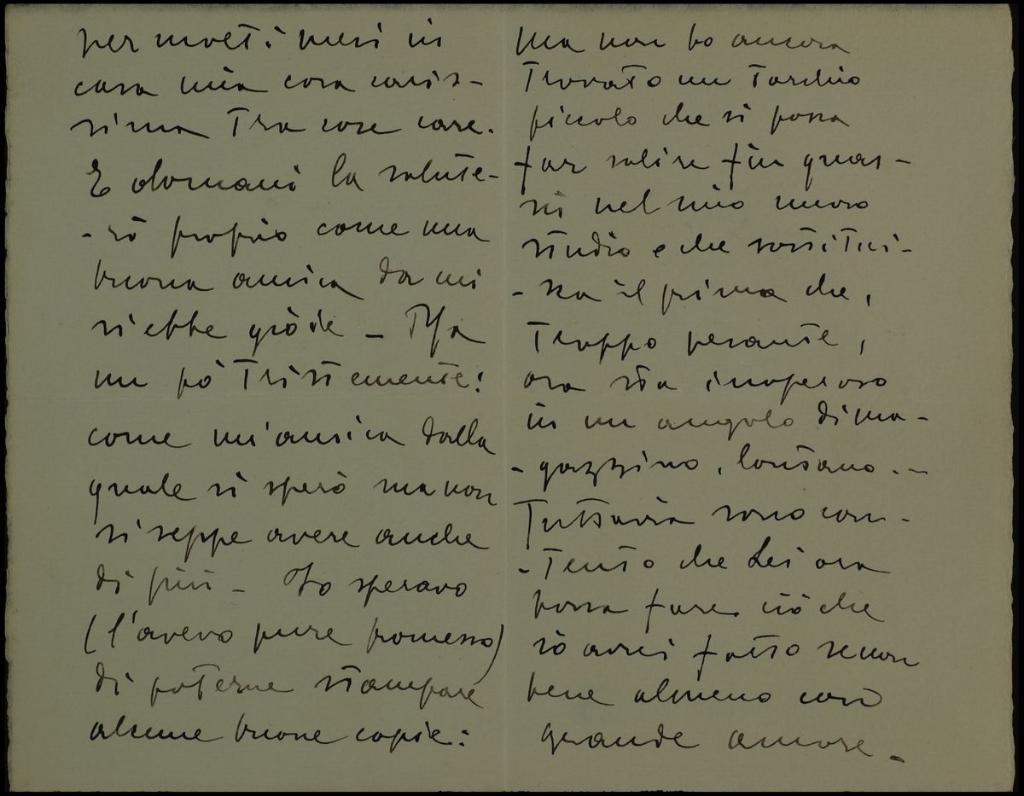 per molti mesi in
casa mia cosa caris-
sima tra cose care.
E domani la salute-
-rò proprio come una
buona amica da cui
si ebbe gioie - Ma
un pò tristemente:
come un'amica dalla
quale si sperò ma non
si seppe avere anche
di più - Io speravo
(l'avevo pure promesso)
di poterne stampare
alcune buone copie:
ma non ho ancora
trovato un torchio
piccolo che si possa
far salire fin quas-
sù nel mio nuovo
studio e che sostitui-
-sca il primo che,
troppo pesante,
ora sta inoperoso
in un angolo di ma-
-gazzino, lontano.-
Tuttavia sono con-
-tento che Lei ora
possa fare ciò che
io avrei fatto se non
bene almeno con
grande amore -